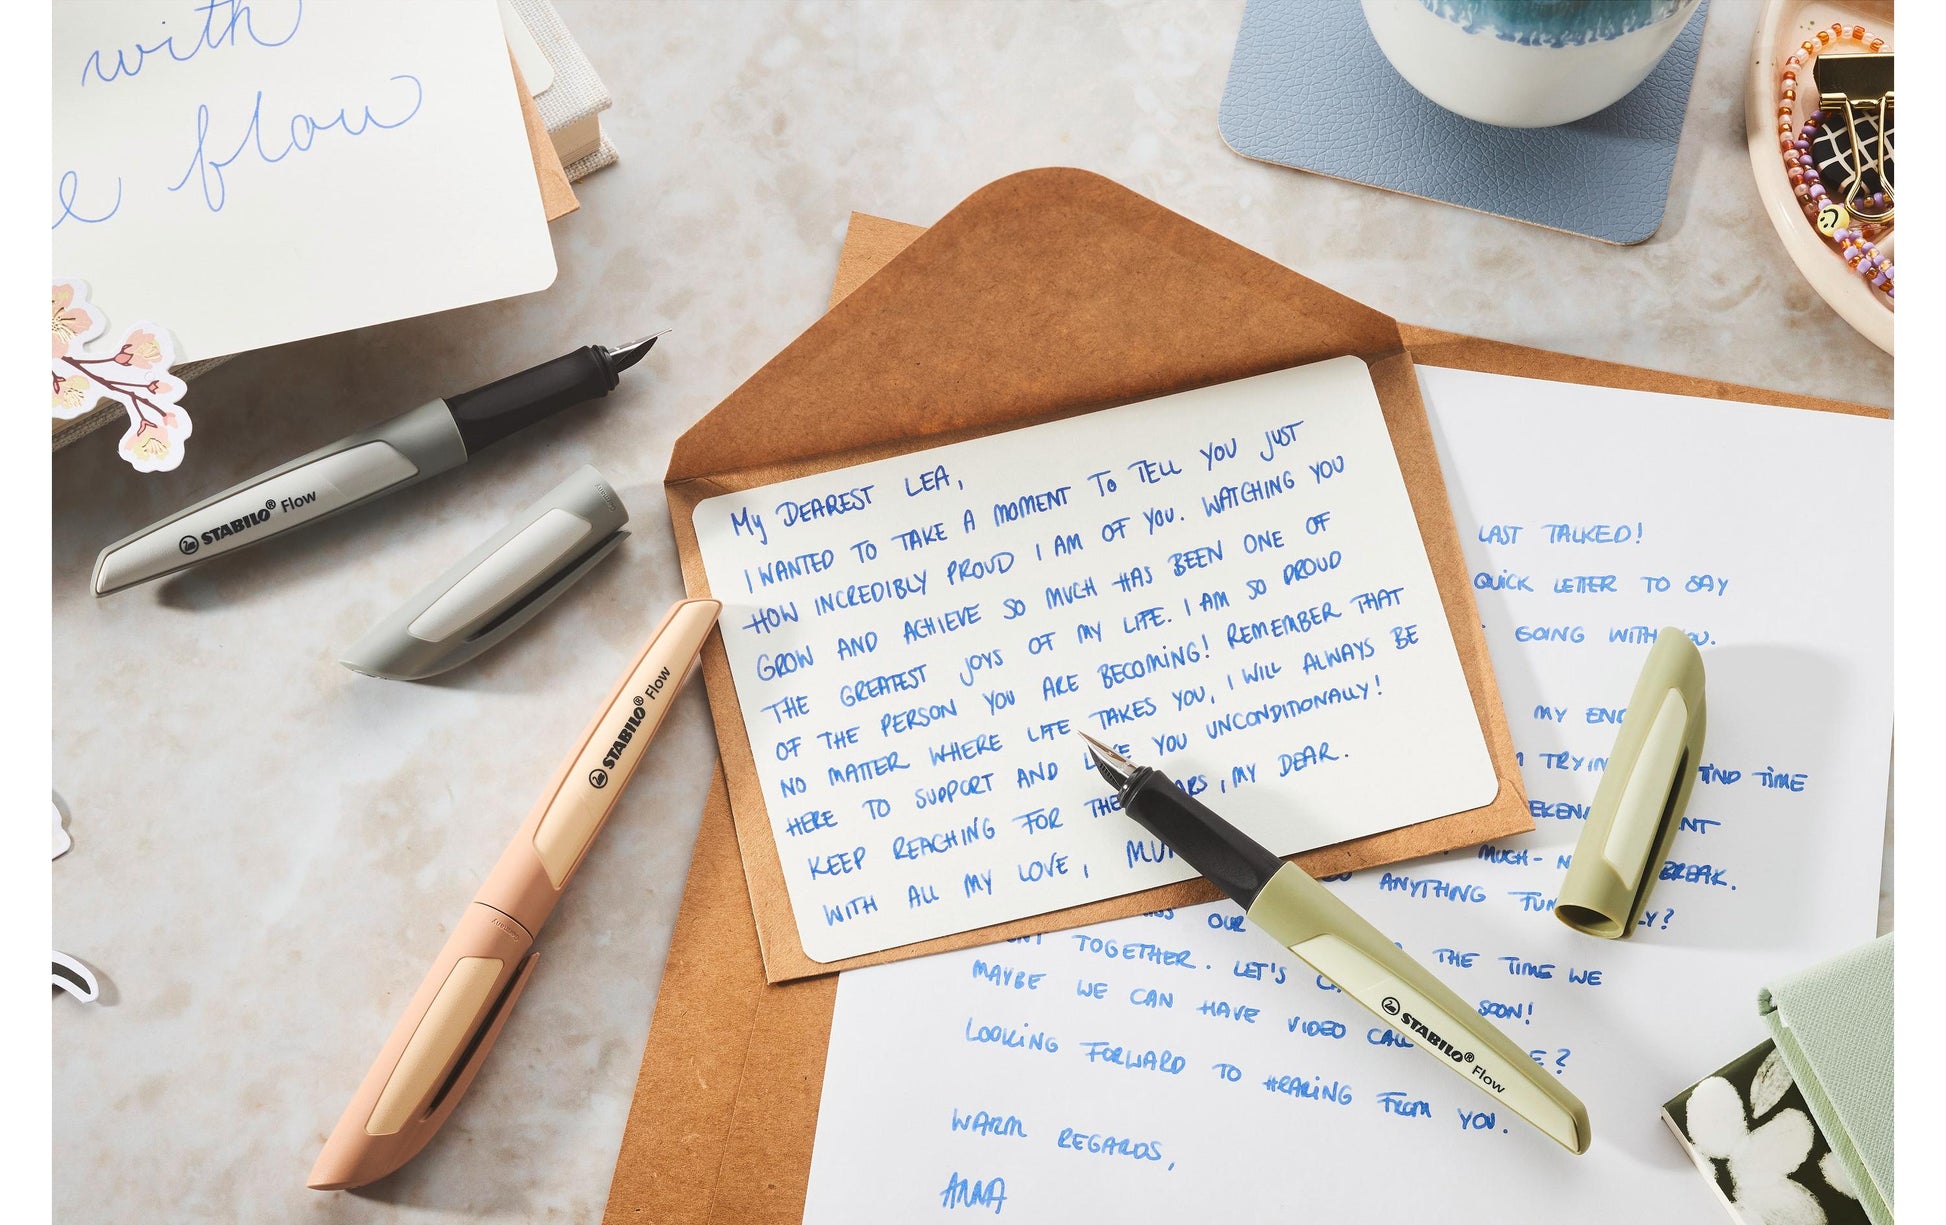 with
flow
STABILO® Flow
STABILO® Flow
My DEAREST LEA,
I WANTED TO TAKE A MOMENT TO TELL YOU JUST
HOW INCREDIBLY PROUD I AM OF YOU. WATCHING YOU
GROW AND ACHIEVE SO MUCH HAS BEEN ONE OF
THE GREATEST JOYS OF MY LIFE. I AM SO PROUD
OF THE PERSON YOU ARE BECOMING! REMEMBER THAT
NO MATTER WHERE LIFE TAKES YOU, I WILL ALWAYS BE
HERE TO SUPPORT AND YOU UNCONDITIONALLY!
KEEP REACHING FOR , MY DEAR.
WITH ALL MY LOVE,
LAST TALKED!
QUICK LETTER TO SAY
GOING WITH
MY
TIME
MUCH- BREAK.
ANYTHING
OUR THE TIME WE
TOGETHER. LET'S SOON!
MAYBE WE CAN HAVE VIDEO ?
LOOKING FORWARD TO HEARING FROM YOU.
WARM REGARDS,
ANNA
STABILO® Flow